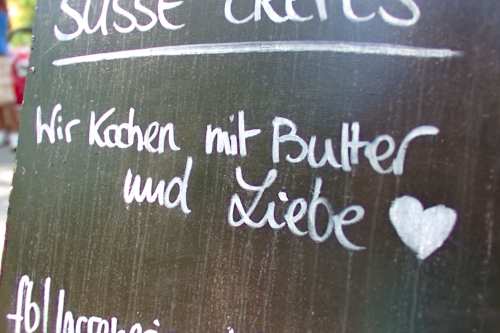 SÜSSE CREPES
Wir Kochen mit Butter
und Liebe